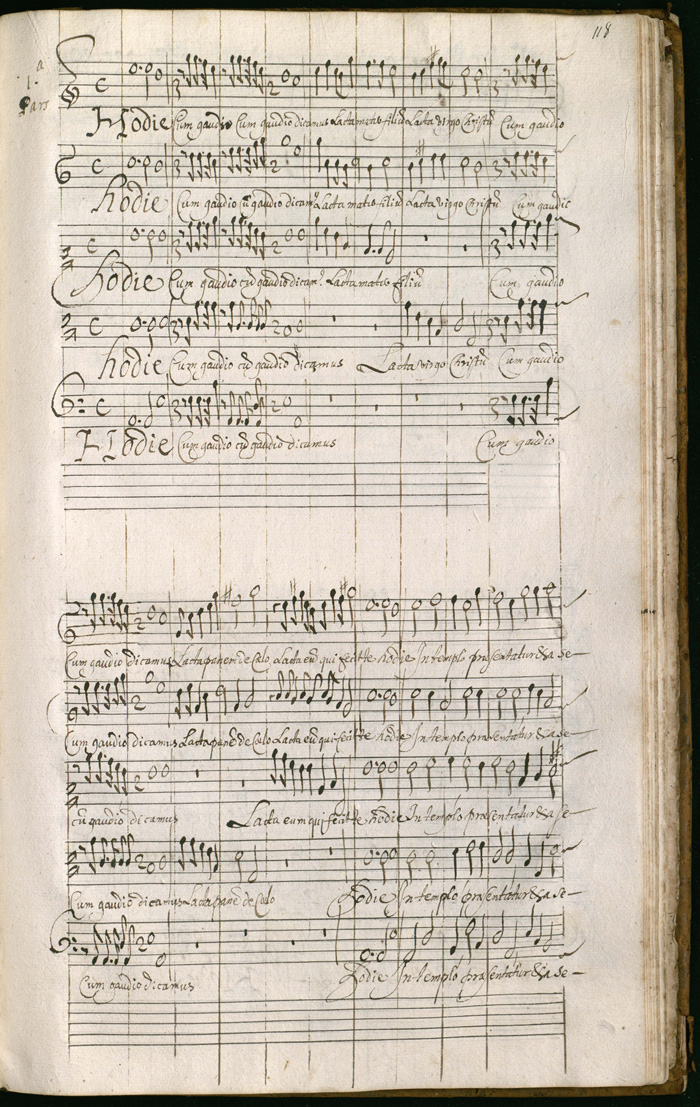 118
1.a
Pars
Hodie Cum gaudio Cum gaudio dicamus Lacta matis filiũ Lacta virgo Christũ Cum gaudio
Hodie Cum gaudio cũ gaudio dicam9 Lacta matis filiũ Lacta virgo Christũ Cum gaudio
Hodie Cum gaudio cũ gaudio dicam9. Lacta matis filiũ Cum gaudio
Hodie Cum gaudio cũ gaudio dicamus Lacta virgo Christũ Cum gaudio
Hodie Cum gaudio cũ gaudio dicamus Cum gaudio
Cum gaudio dicamus Lacta panem de Celo Lacta eũ qui fecit te hodie In templo præsentatur
Cum gaudio dicamus Lacta panẽ de Celo Lacta eũ qui fecit te hodie In templo præsentatur
cũ gaudio dicamus Lacta eum qui fecit te hodie In templo præsentatur
Cum gaudio dicamus Lacta panẽ de Celo Hodie In templo præsentatur
Cum gaudio dicamus Hodie In templo præsentatur